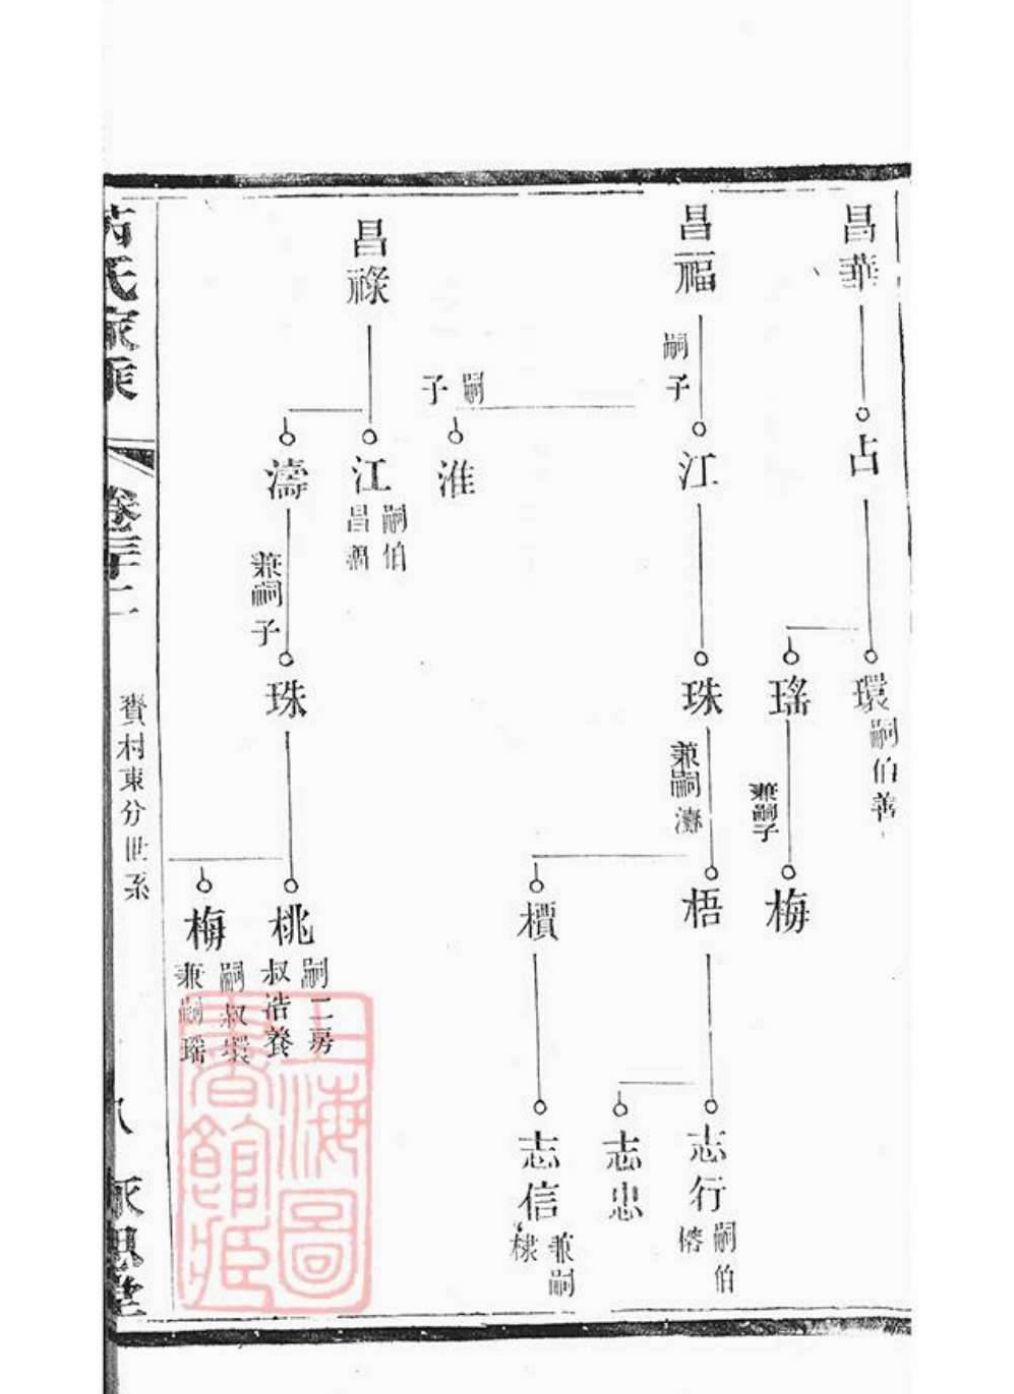 昌華
占
環
嗣伯善
瑤
兼嗣子
梅
昌福
嗣子
江
珠
兼嗣濤
梧
志行
嗣伯
志忠
檟
志信
兼嗣
棣
嗣子
淮
昌祿
江
嗣伯
昌福
濤
兼嗣子
珠
桃
嗣二房
叔浩養
梅
嗣叔環
兼嗣瑤
氏家乘
卷三十二
賚村東分世系
八
上海圖
書館藏